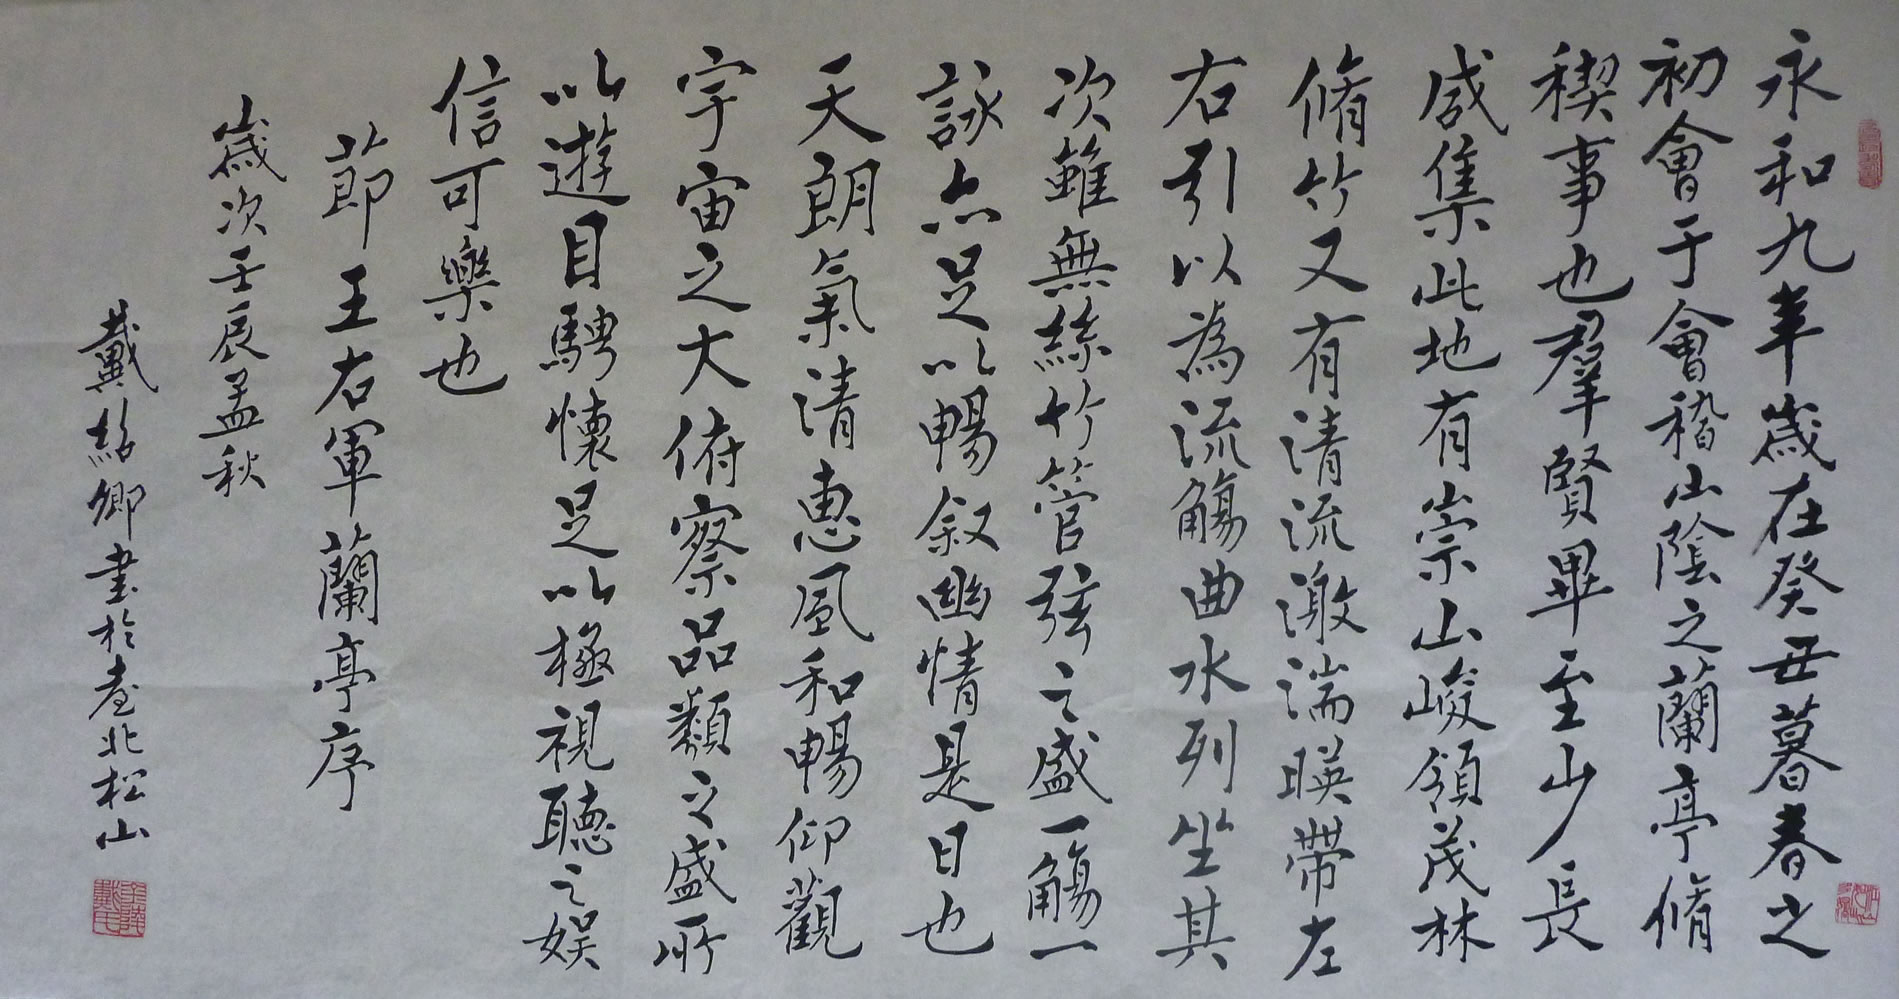 永和九年歲在癸丑暮春之
初會于會稽山陰之蘭亭脩
稧事也羣賢畢至少長
咸集此地有崇山峻領茂林
脩竹又有清流激湍暎帶左
右引以為流觴曲水列坐其
次雖無絲竹管弦之盛一觴一
詠亦足以暢叙幽情是日也
天朗氣清惠風和暢仰觀
宇宙之大俯察品類之盛所
以遊目騁懷足以極視聽之娱
信可樂也
節王右軍蘭亭序
歲次壬辰孟秋
戴紹卿書於臺北松山